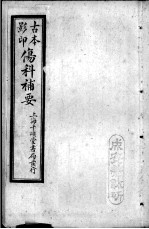 古本
影印
傷科補要
上海千頃堂書局發行